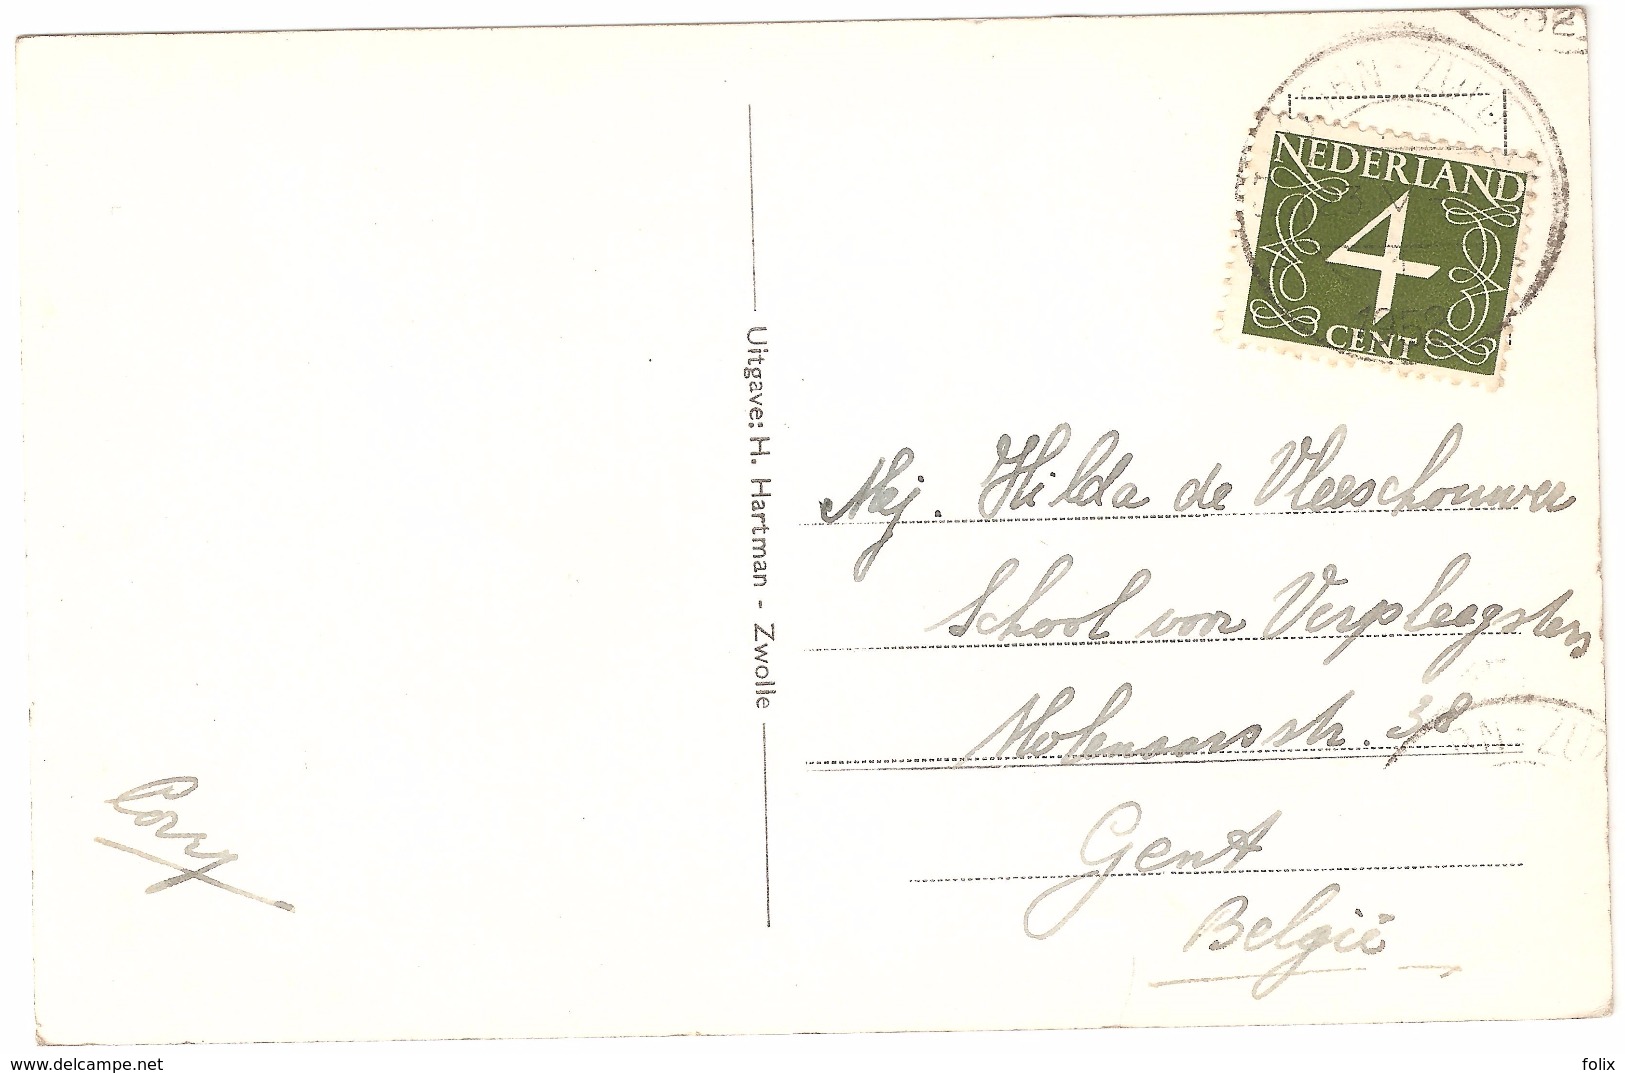 NEDERLAND
4
CENT
Uitgave: H. Hartman - Zwolle
Mej. Hilda de Vleeschouwer
School voor Verpleegsters
Molenaarsstr. 38
Gent
België
Corry
www.delcampe.net
folix